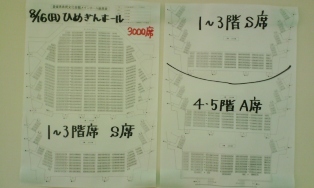 8/16(日)ひめぎんホール
3000席
1~3階席 S席
1~3階 S席
4・5階 A席